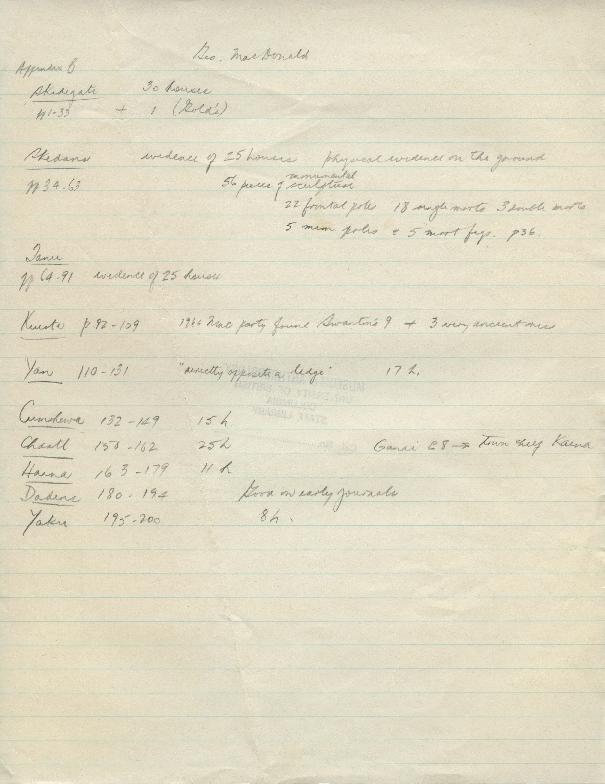 Geo. MacDonald
Appendix B
Skidegate 30 houses
pp1-33 + 1 (Gold's)
Skedans evidence of 25 houses physical evidence on the ground
pp 34-63 56 pieces of monumental sculpture
22 frontal poles 18 single morts 3 double morts
5 mem poles & 5 mort figs. p36.
Tanu
pp 64-91 evidence of 25 houses
Kiusta p92-109 1966 Mac party found Swanton's 9 + 3 very ancient
Yan 110-131 "directly opposite a ledge" 17 h.
Cumshewa 132-149 15 h
Chaatl 150-162 25h
Haina 163-179 11 h
Dadens 180-194 Good on early journals
Yaku 195-200 8h.